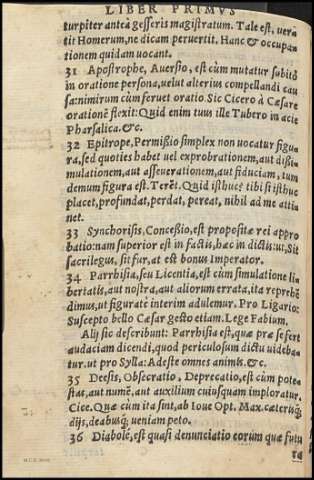 LIBER PRIMVS
turpiter anteà gesseris magistratum. Tale est, uera
tit Homerum, ne dicam peruertit. Hanc & occupan
tionem quidam uocant.
31 Apostrophe, Auersio, est cùm mutatur subitò
in oratione persona, uelut alterius compellandi cau
sa: nimirum cùm feruet oratio. Sic Cicero à Cæsare
orationē flexit: Quid enim tuus ille Tubero in acie
Pharsalica. &c.
32 Epitrope, Permißio simplex non uocatur figu
ra, sed quoties habet uel exprobrationem, aut dißi
mulationem, aut asseuerationem, aut fiduciam, tum
demum figura est. Terēt. Quid isthuc? tibi si isthuc
placet, profundat, perdat, pereat, nihil ad me attia
net.
33 Synchorisis, Conceßio, est proposita rei appro
batio: nam superior est in factis, hac in dictis: ut, Sit
sacrilegus, sit fur, at est bonus Imperator.
34 Parrhisia, seu Licentia, est cùm simulatione li
bertatis, aut nostra, aut aliorum errata, ita reprehē
dimus, ut figuratè interim adulemur. Pro Ligario:
Suscepto bello Cæsar gesto etiam. Lege Fabium.
Alij sic describunt: Parrhisia est, quæ præ se fert
audaciam dicendi, quod periculosum dictu uideba
tur. ut pro Sylla: Adeste omnes animis. &c.
35 Deesis, Obsecratio, Deprecatio, est cùm pote
stas, aut numē, aut auxilium cuiusquam imploratur.
Cice. Quæ cùm ita sint, ab Ioue Opt. Max. cæterisq;
dijs, deabusq; ueniam peto.
36 Diabolé, est quasi denunciatio eorum quæ futu
ra